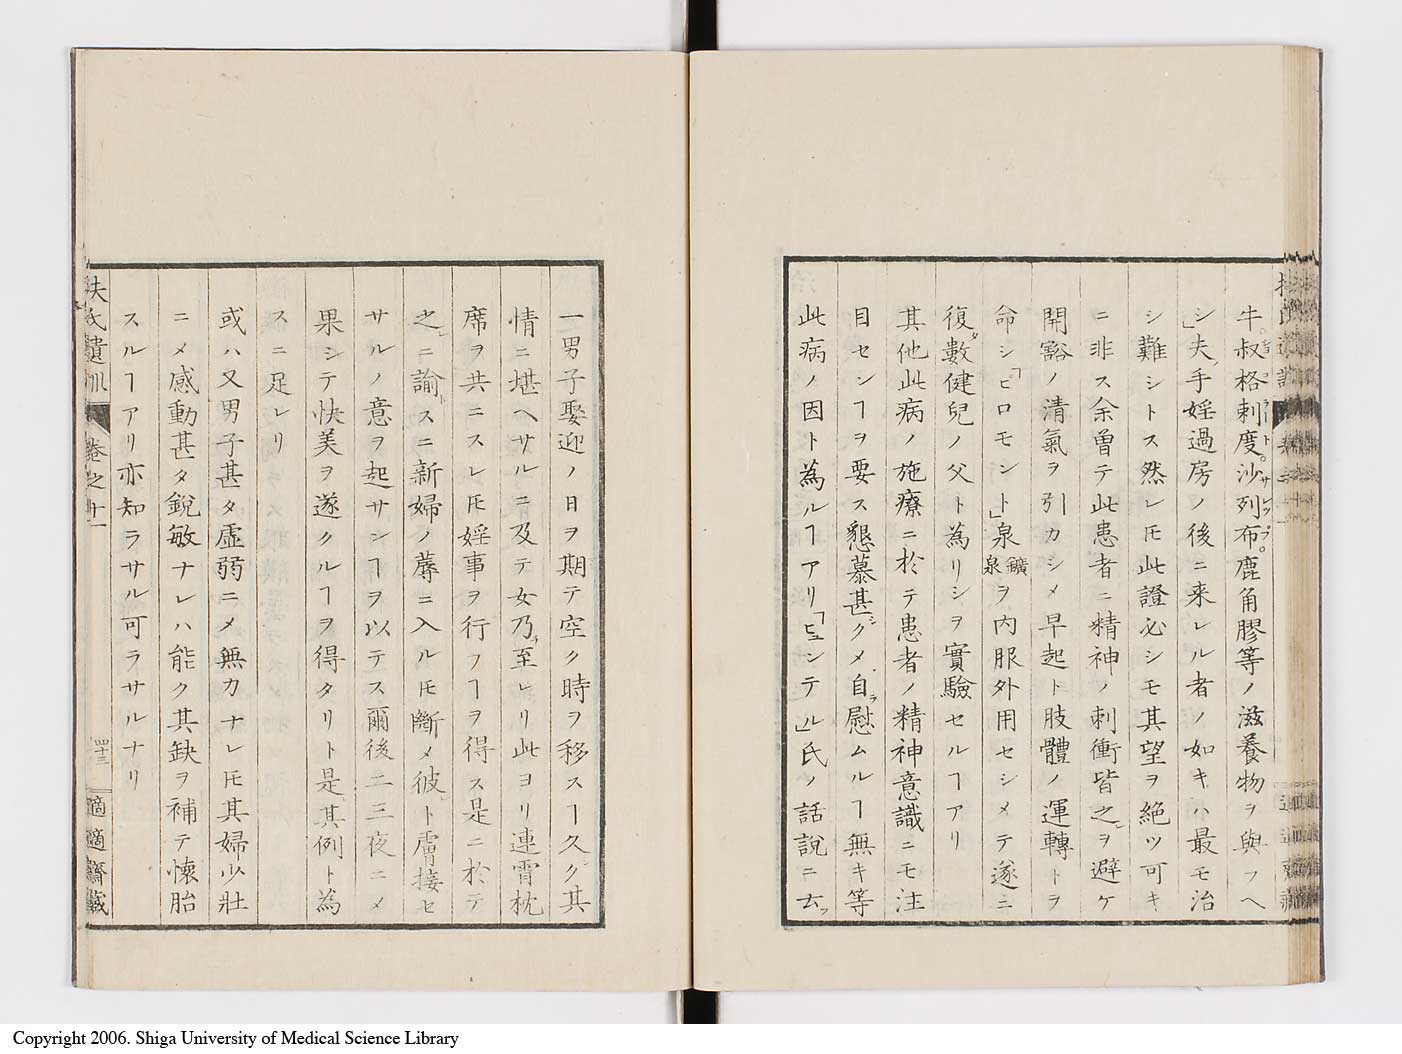 牛叔格刺度沙列布鹿角膠等ノ滋養物ヲ與フヘ
シ夫手婬過房ノ後ニ来レル者ノ如キハ最モ治
シ難シトス然レㇳモ此證必シモ其望ヲ絶ツ可キ
ニ非ス余曽テ此患者ニ精神ノ刺衝皆之ヲ避ケ
開豁ノ清氣ヲ引カシメ早起ト肢體ノ運轉トヲ
命シ「ピロモント」泉鑛泉ヲ内服外用セシメテ遂ニ
復數健兒ノ父ト為リシヲ實驗セルヿアリ
其他此病ノ施療ニ於テ患者ノ精神意識ニモ注
目センヿヲ要ス懇慕甚シクメ自ラ慰ムルヿ無キ等
此病ノ因ト為ルヿアリ「ヒュンテル」氏ノ話說ニ云フ
一男子娶迎ノ日ヲ期テ空ク時ヲ移スヿ久ク其
情ニ堪ヘサルニ及テ女乃チ至レリ此ヨリ連霄枕
席ヲ共ニスレㇳモ婬事ヲ行フヿヲ得ス是ニ於テ
之ニ諭スニ新婦ノ蓐ニ入ルㇳモ斷メ彼ト膚接セ
サルノ意ヲ起サンヿヲ以テス爾後二三夜ニメ
果シテ快美ヲ遂クルヿヲ得タリト是其例ト為
スニ足レリ
或ハ又男子甚タ虛弱ニメ無力ナレㇳモ其婦少壯
ニメ感動甚タ銳敏ナレハ能ク其缺ヲ補テ懷胎
スルヿアリ亦知ラサル可ラサルナリ
扶氏遺訓 卷之廿一 四十三 適適齋藏
Copyright 2006. Shiga University of Medical Science Library